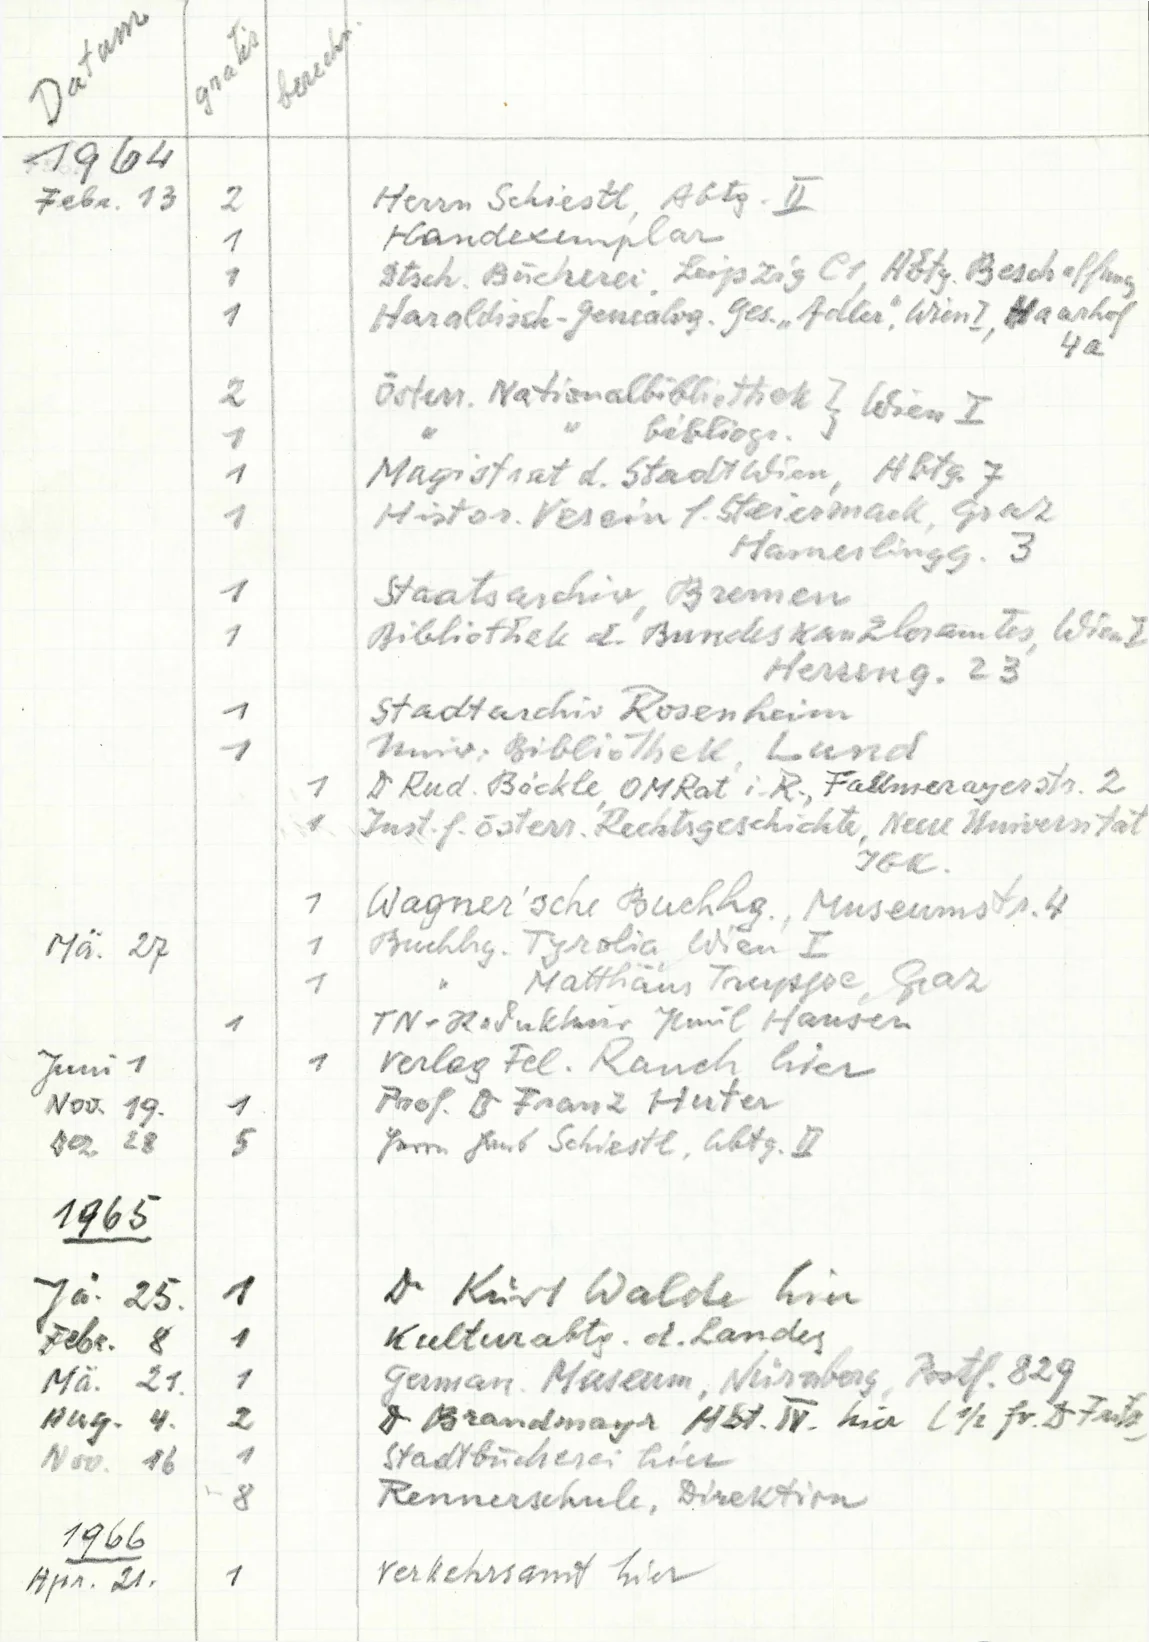 Datum gratis berechn.
1964
Febr. 13 2 Herrn Schiestl, Abtg. II
1 Handexemplar
1 Dtsch. Bücherei, Leipzig C1, Abtg. Beschaffung
1 Haraldisch-Genealog. Ges. „Adler", Wien I, Haarhof
4a
2 Österr. Nationalbibliothek } Wien I
1 " " bibliogr. }
1 Magistrat d. Stadt Wien, Abtg. 7
1 Histor. Verein f. Steiermark, Graz
Hamerlingg. 3
1 Staatsarchiv, Bremen
1 Bibliothek d. Bundeskanzleramtes, Wien I
Herreng. 23
1 Stadtarchiv Rosenheim
1 Univ. Bibliothek, Lund
1 Dr Rud. Böckle, OMRat i. R., Fallmerayerstr. 2
1 Inst. f. österr. Rechtsgeschichte, Neue Universität
IBK.
1 Wagner'sche Buchhg., Museumstr. 4
Mä. 27 1 Buchhg. Tyrolia, Wien I
1 " Matthäus Truppe, Graz
1 TN-Redakteur Hansen
Juni 1 1 Verlag Fel. Rauch hier
Nov. 19. 1 Prof. Dr Franz Huter
Dez. 28 5 Herrn Schiestl, Abtg. II
1965
Jä. 25. 1 Dr Kurt Walde hier
Febr. 8 1 Kulturabtg. d. Landes
Mä. 21. 1 German. Museum, Nürnberg, Postf. 829
Aug. 4. 2 Dr Brandmayr Abt. IV. hier (1/2 fr. Dr Fritz
Nov. 16 1 Stadtbücherei hier
8 Rennerschule, Direktion
1966
Apr. 21. 1 Verkehrsamt hier